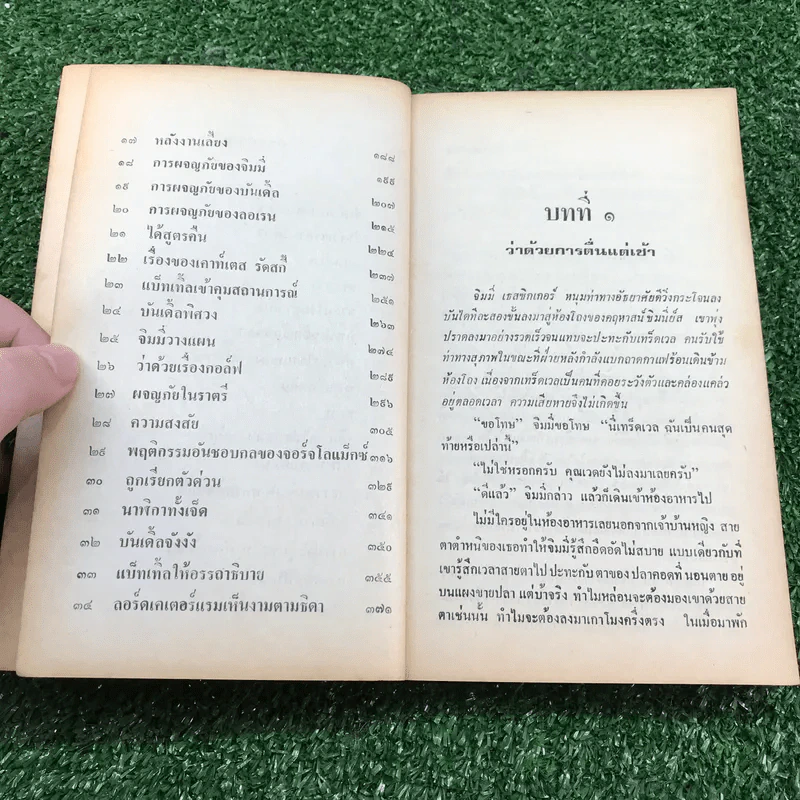 ๑๗ หลังงานเลี้ยง ๑๘๘
๑๘ การผจญภัยของจิมมี่ ๑๙๙
๑๙ การผจญภัยของบันเดิ้ล ๒๐๗
๒๐ การผจญภัยของลอเรน ๒๑๕
๒๑ ได้สูตรคืน ๒๒๔
๒๒ เรื่องของเคาท์เตส รัดสกี้ ๒๓๗
๒๓ แบ็ทเทิ้ลเข้าคุมสถานการณ์ ๒๕๑
๒๔ บันเดิ้ลพิศวง ๒๖๓
๒๕ จิมมี่วางแผน ๒๗๔
๒๖ ว่าด้วยเรื่องกอล์ฟ ๒๘๙
๒๗ ผจญภัยในราตรี ๒๙๖
๒๘ ความสงสัย ๓๐๕
๒๙ พฤติกรรมอันชอบกลของจอร์จโลแม็กซ์ ๓๑๖
๓๐ ถูกเรียกตัวด่วน ๓๒๙
๓๑ นาฬิกาทั้งเจ็ด ๓๔๑
๓๒ บันเดิ้ลจังงัง ๓๕๐
๓๓ แบ็ทเทิ้ลให้อรรถาธิบาย ๓๕๕
๓๔ ลอร์ดเคเตอร์แรมเห็นงามตามธิดา ๓๗๑
บทที่ ๑
ว่าด้วยการตื่นแต่เช้า
จิมมี่ เธสซิกเกอร์ หนุ่มท่าทางอัธยาศัยดีวิ่งกระโจนลง
บันไดทีละสองขั้นลงมาสู่ห้องโถงของคฤหาสน์ชิมนี่ย์ส เขาพุ่ง
ปราดลงมาอย่างรวดเร็วจนแทบจะปะทะกับเทร็ดเวล คนรับใช้
ท่าทางสุภาพในขณะที่ฝ่ายหลังกำลังแบกถาดกาแฟร้อนเดินข้าม
ห้องโถง เนื่องจากเทร็ดเวลเป็นคนที่คอยระวังตัวและคล่องแคล่ว
อยู่ตลอดเวลา ความเสียหายจึงไม่เกิดขึ้น
“ขอโทษ” จิมมี่ขอโทษ “นี่เทร็ดเวล ฉันเป็นคนสุด
ท้ายหรือเปล่านี่”
“ไม่ใช่หรอกครับ คุณเวดยังไม่ลงมาเลยครับ”
“ดีแล้ว” จิมมี่กล่าว แล้วก็เดินเข้าห้องอาหารไป
ไม่มีใครอยู่ในห้องอาหารเลยนอกจากเจ้าบ้านหญิง สาย
ตาตำหนิของเธอทำให้จิมมี่รู้สึกอึดอัดไม่สบาย แบบเดียวกับที่
เขารู้สึกเวลาสายตาไปปะทะกับตาของปลาคอดที่นอนตายอยู่
บนแผงขายปลา แต่บ้าจริง ทำไมหล่อนจะต้องมองเขาด้วยสาย
ตาเช่นนั้น ทำไมจะต้องลงมาเก้าโมงครึ่งตรง ในเมื่อมาพัก